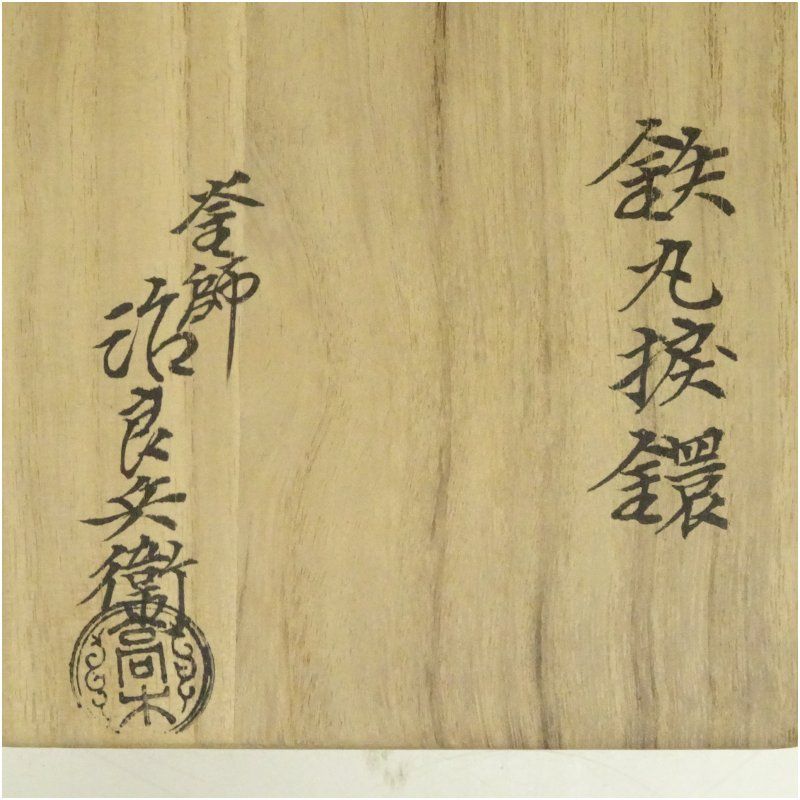 鉄丸捩鐶
釜師
治良兵衛
高木